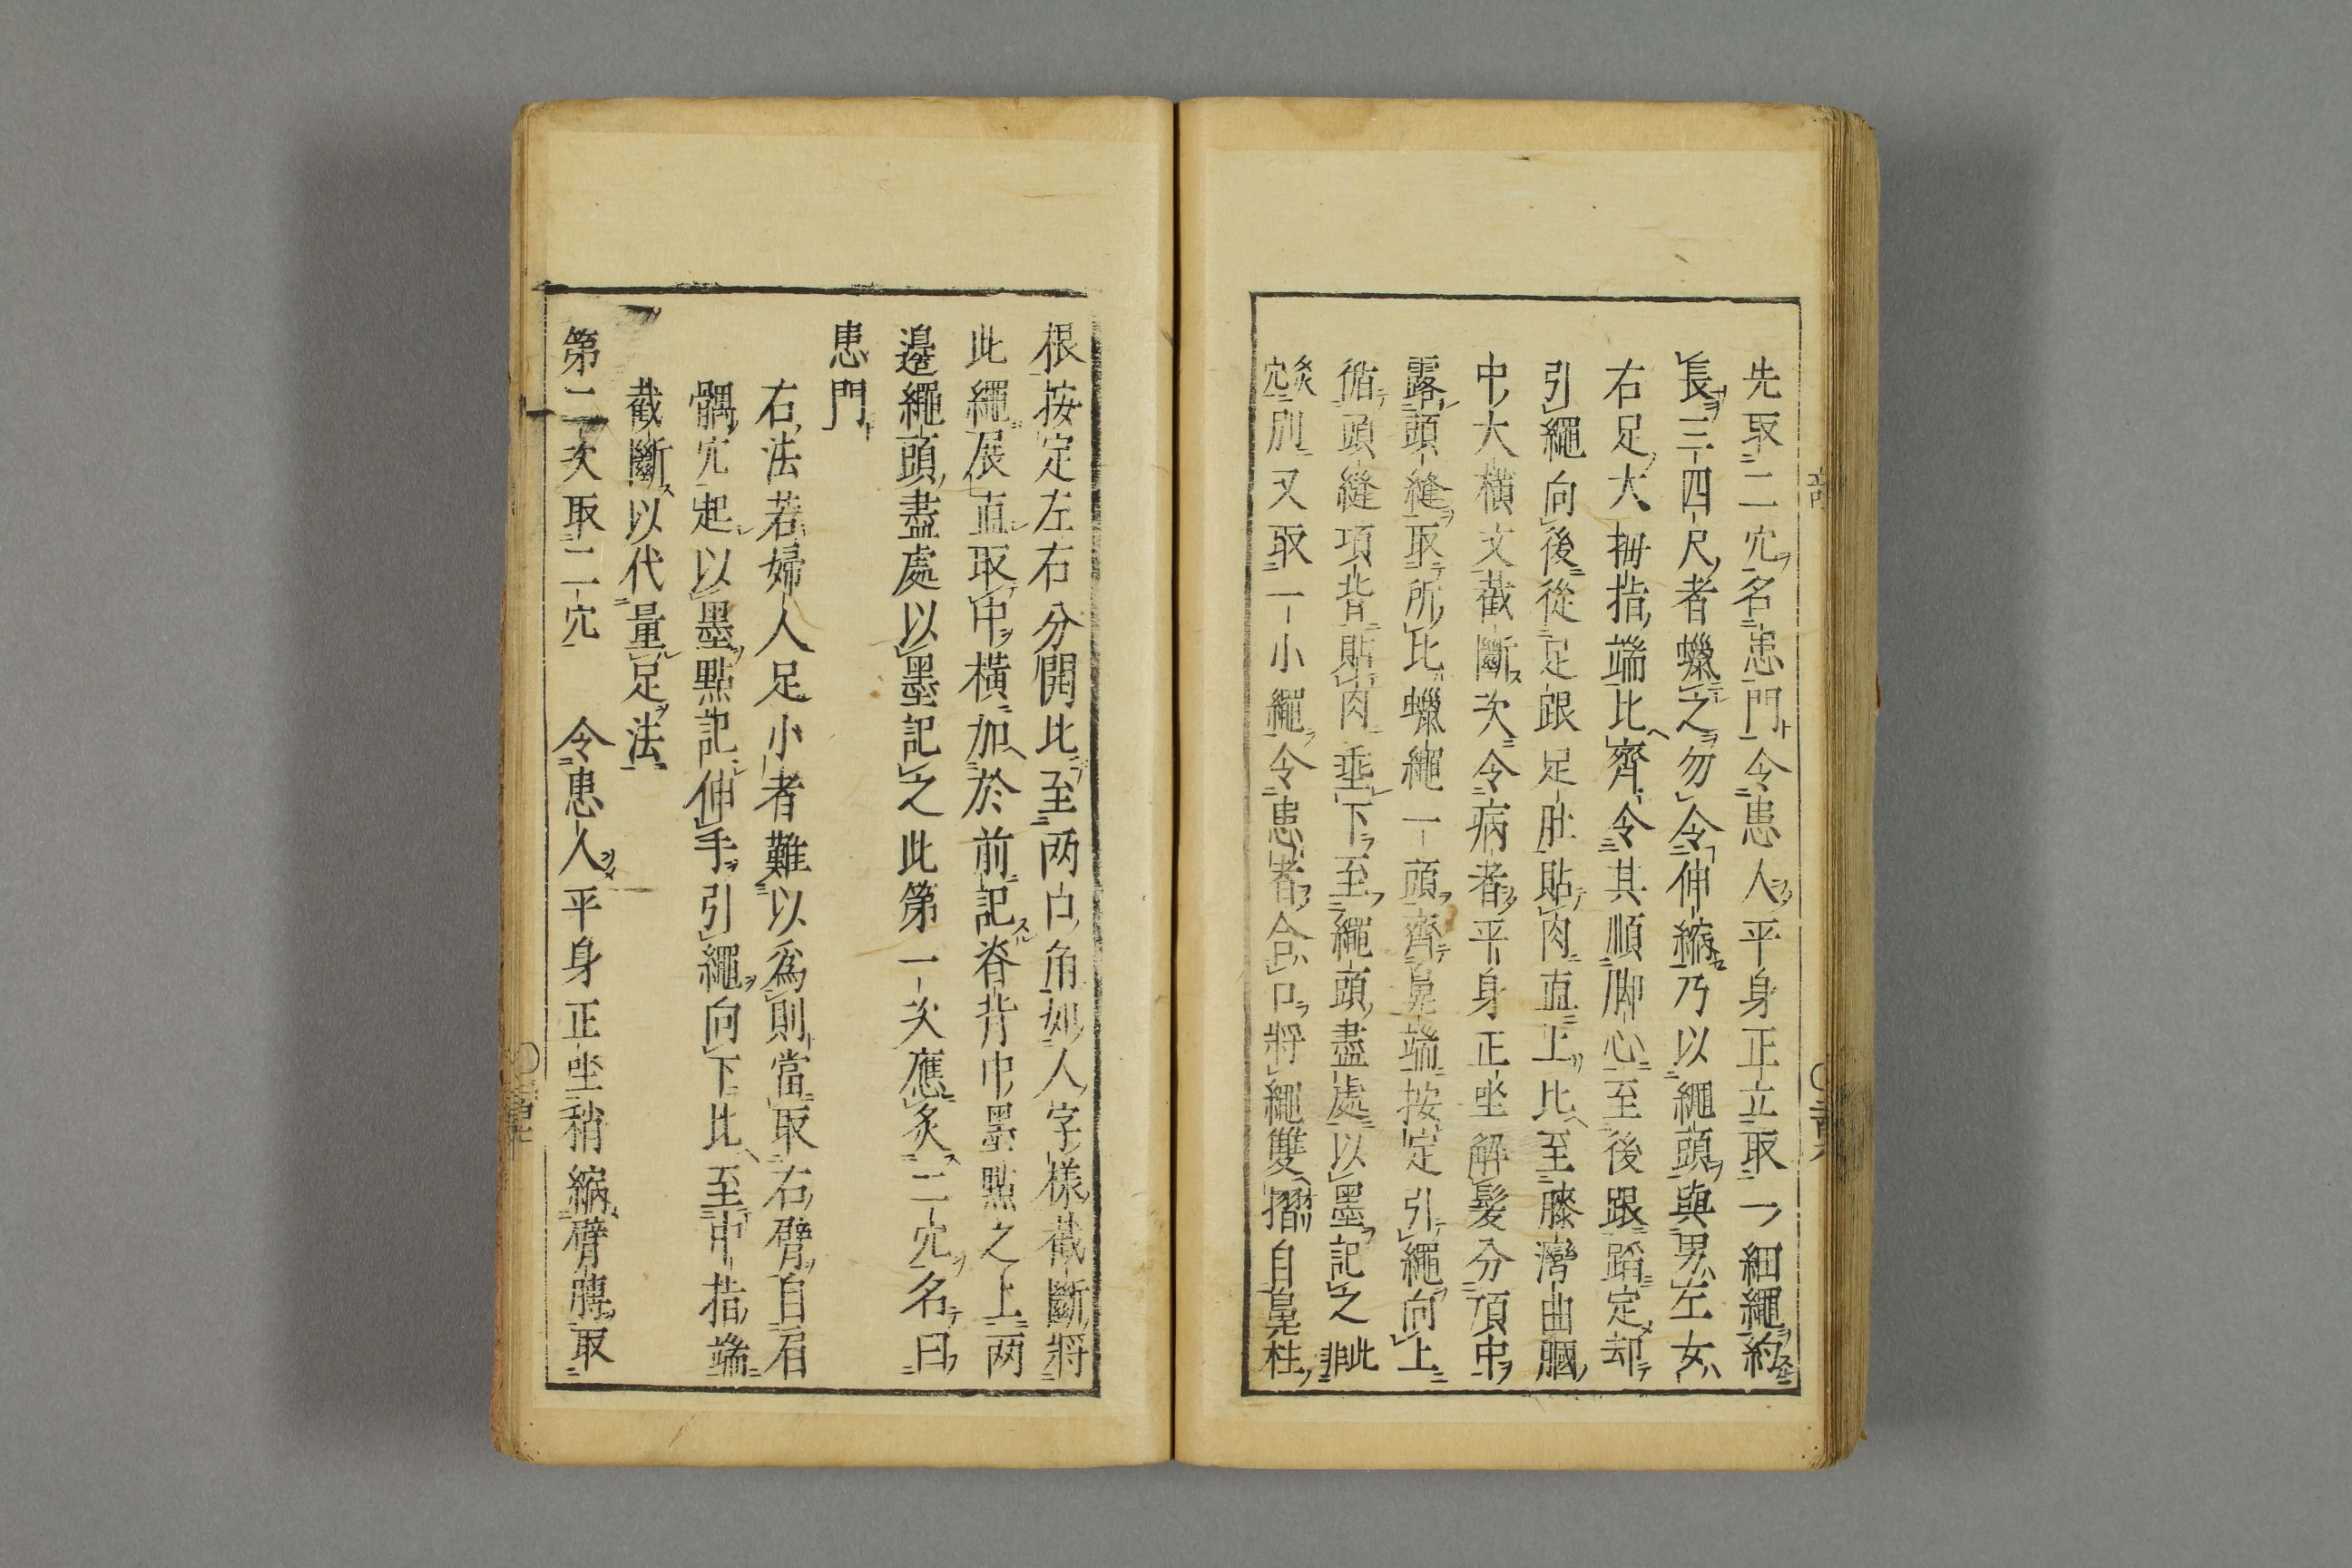 先取二穴名患門令患人平身正立取一細繩約
長三四尺者蠟之勿令伸縮乃以繩頭與男左女
右足大拇指端比齊令其順脚心至後跟蹈定却
引繩向後從足跟足肚貼肉直上比至膝灣曲䐃
中大橫文截斷次令病者平身正坐解髮分頂中
露頭縫取所比蠟繩一頭齊鼻端按定引繩向上
循頭縫項背貼肉垂下至繩頭盡處以墨記之此非
灸穴別又取一小繩令患者合口將繩雙摺自鼻柱
根按定左右分開比至两口角如人字樣截斷將
此繩展直取中橫加於前記脊背中墨點之上两
邊繩頭盡處以墨記之此第一次應灸二穴名曰
患門
右法若婦人足小者難以爲則當取右臂自肩
髃穴起以墨點記伸手引繩向下比至中指端
截斷以代量足法
第二次取二穴 令患人平身正坐稍縮臂膊取